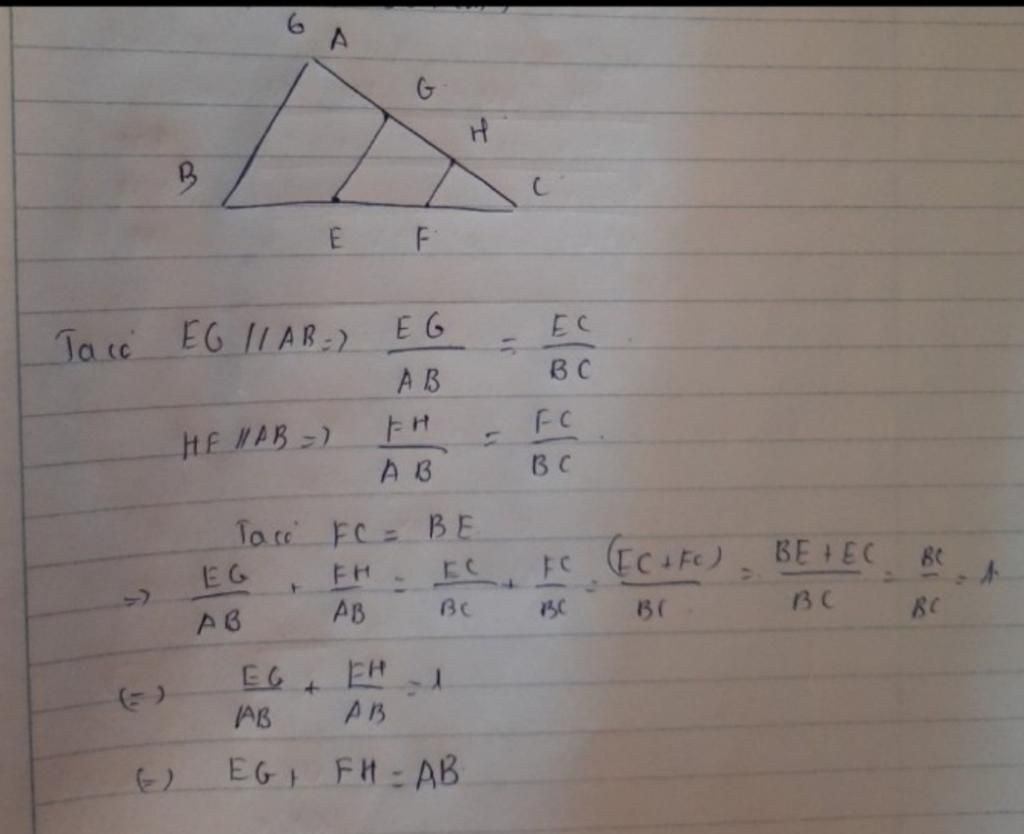 6 A
G
H
B
C
E F
Ta có EG // AB => EG/AB = EC/BC
HF // AB => FH/AB = FC/BC
Ta có FC = BE
=> EG/AB + FH/AB = EC/BC + FC/BC = (EC + FC)/BC = BE + EC/BC = BC/BC = 1
(=) EG/AB + FH/AB = 1
(=) EG + FH = AB